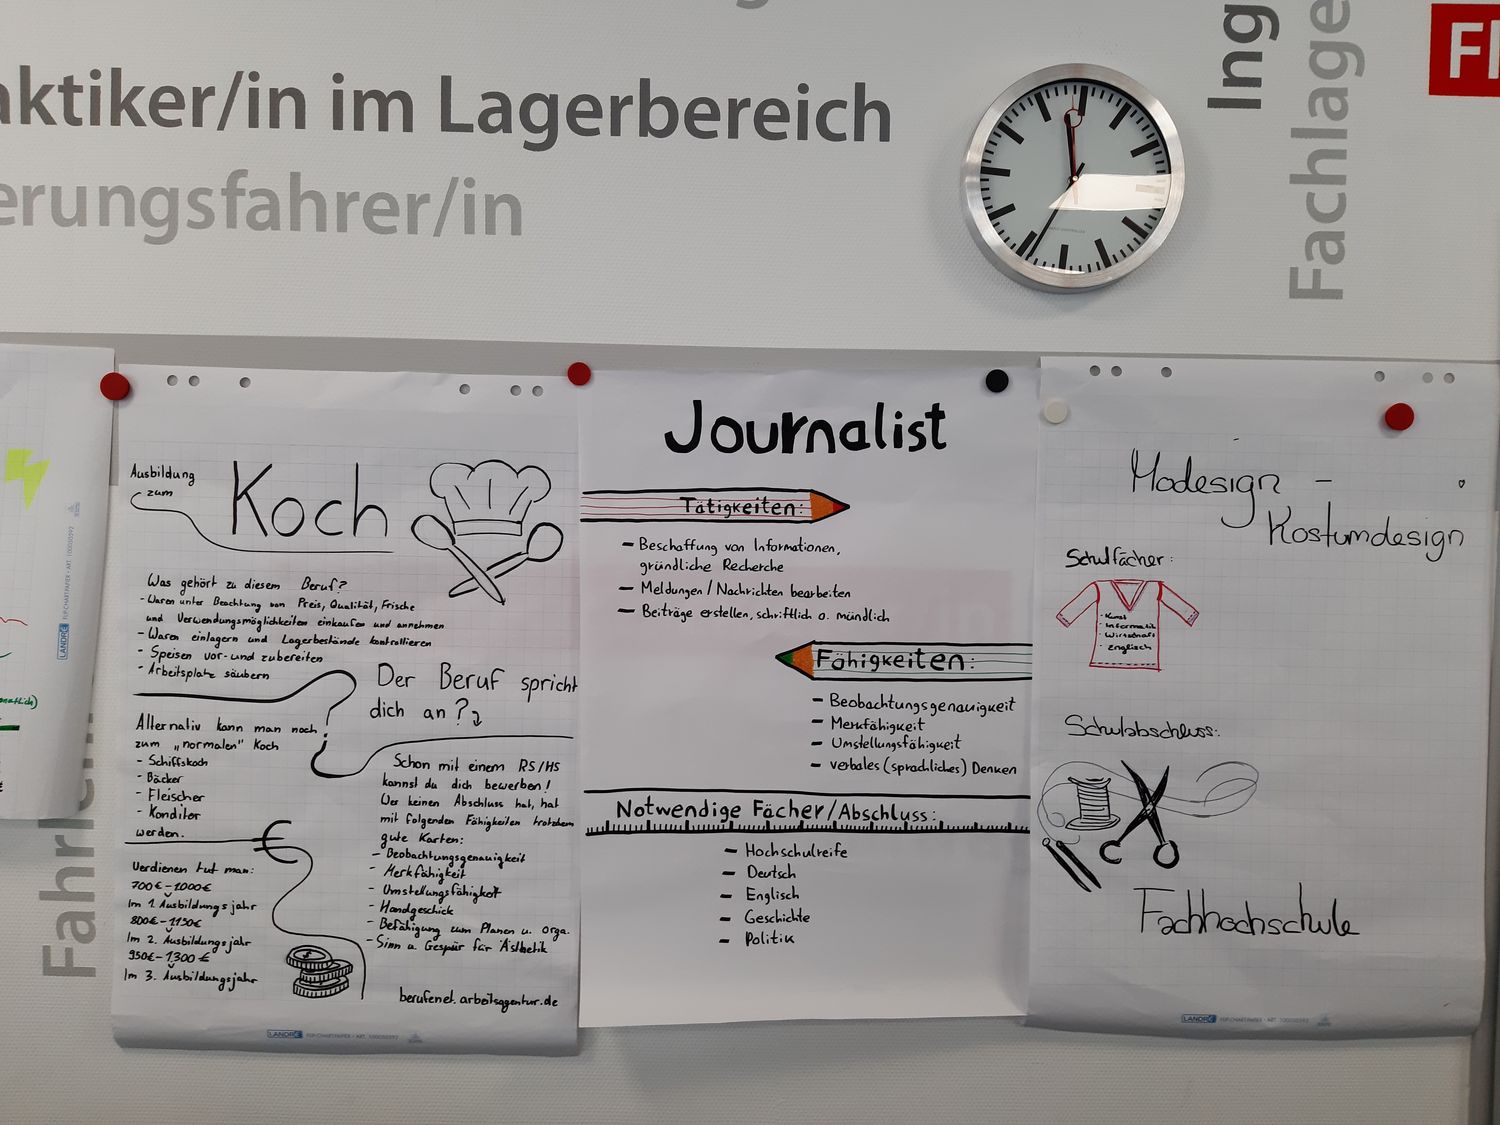 aktiker/in im Lagerbereich
erungsfahrer/in
Ing
Fachlage
Fahrl
Ausbildung
zum
Koch
Was gehört zu diesem Beruf?
- Waren unter Beachtung von Preis, Qualität, Frische
und Verwendungsmöglichkeiten einkaufen und annehmen
- Waren einlagern und Lagerbestände kontrollieren
- Speisen vor- und zubereiten
- Arbeitsplatz säubern
Der Beruf spricht
dich an?
Alternativ kann man noch
zum „normalen" Koch
- Schiffskoch
- Bäcker
- Fleischer
- Konditor
werden.
€
Verdienen tut man:
700€-1000€
Im 1. Ausbildungsjahr
800€-1150€
Im 2. Ausbildungsjahr
950€-1300€
Im 3. Ausbildungsjahr
Schon mit einem RS/HS
kannst du dich bewerben!
Wer keinen Abschluss hat, hat
mit folgenden Fähigkeiten trotzdem
gute Karten:
- Beobachtungsgenauigkeit
- Merkfähigkeit
- Umstellungsfähigkeit
- Handgeschick
- Befähigung zum Planen u. Orga.
- Sinn u. Gespür für Ästhetik
berufenet.arbeitsagentur.de
LANDRÉ FLIP-CHARTPAPER • ART. 100050592
Journalist
Tätigkeiten:
- Beschaffung von Informationen,
gründliche Recherche
- Meldungen/Nachrichten bearbeiten
- Beiträge erstellen, schriftlich o. mündlich
Fähigkeiten:
- Beobachtungsgenauigkeit
- Merkfähigkeit
- Umstellungsfähigkeit
- verbales (sprachliches) Denken
Notwendige Fächer/Abschluss:
- Hochschulreife
- Deutsch
- Englisch
- Geschichte
- Politik
Modesign -
Kostümdesign
Schulfächer:
- Kunst
- Informatik
- Wirtschaft
- Englisch
Schulabschluss:
Fachhochschule
LANDRÉ FLIP-CHARTPAPER • ART. 100050592